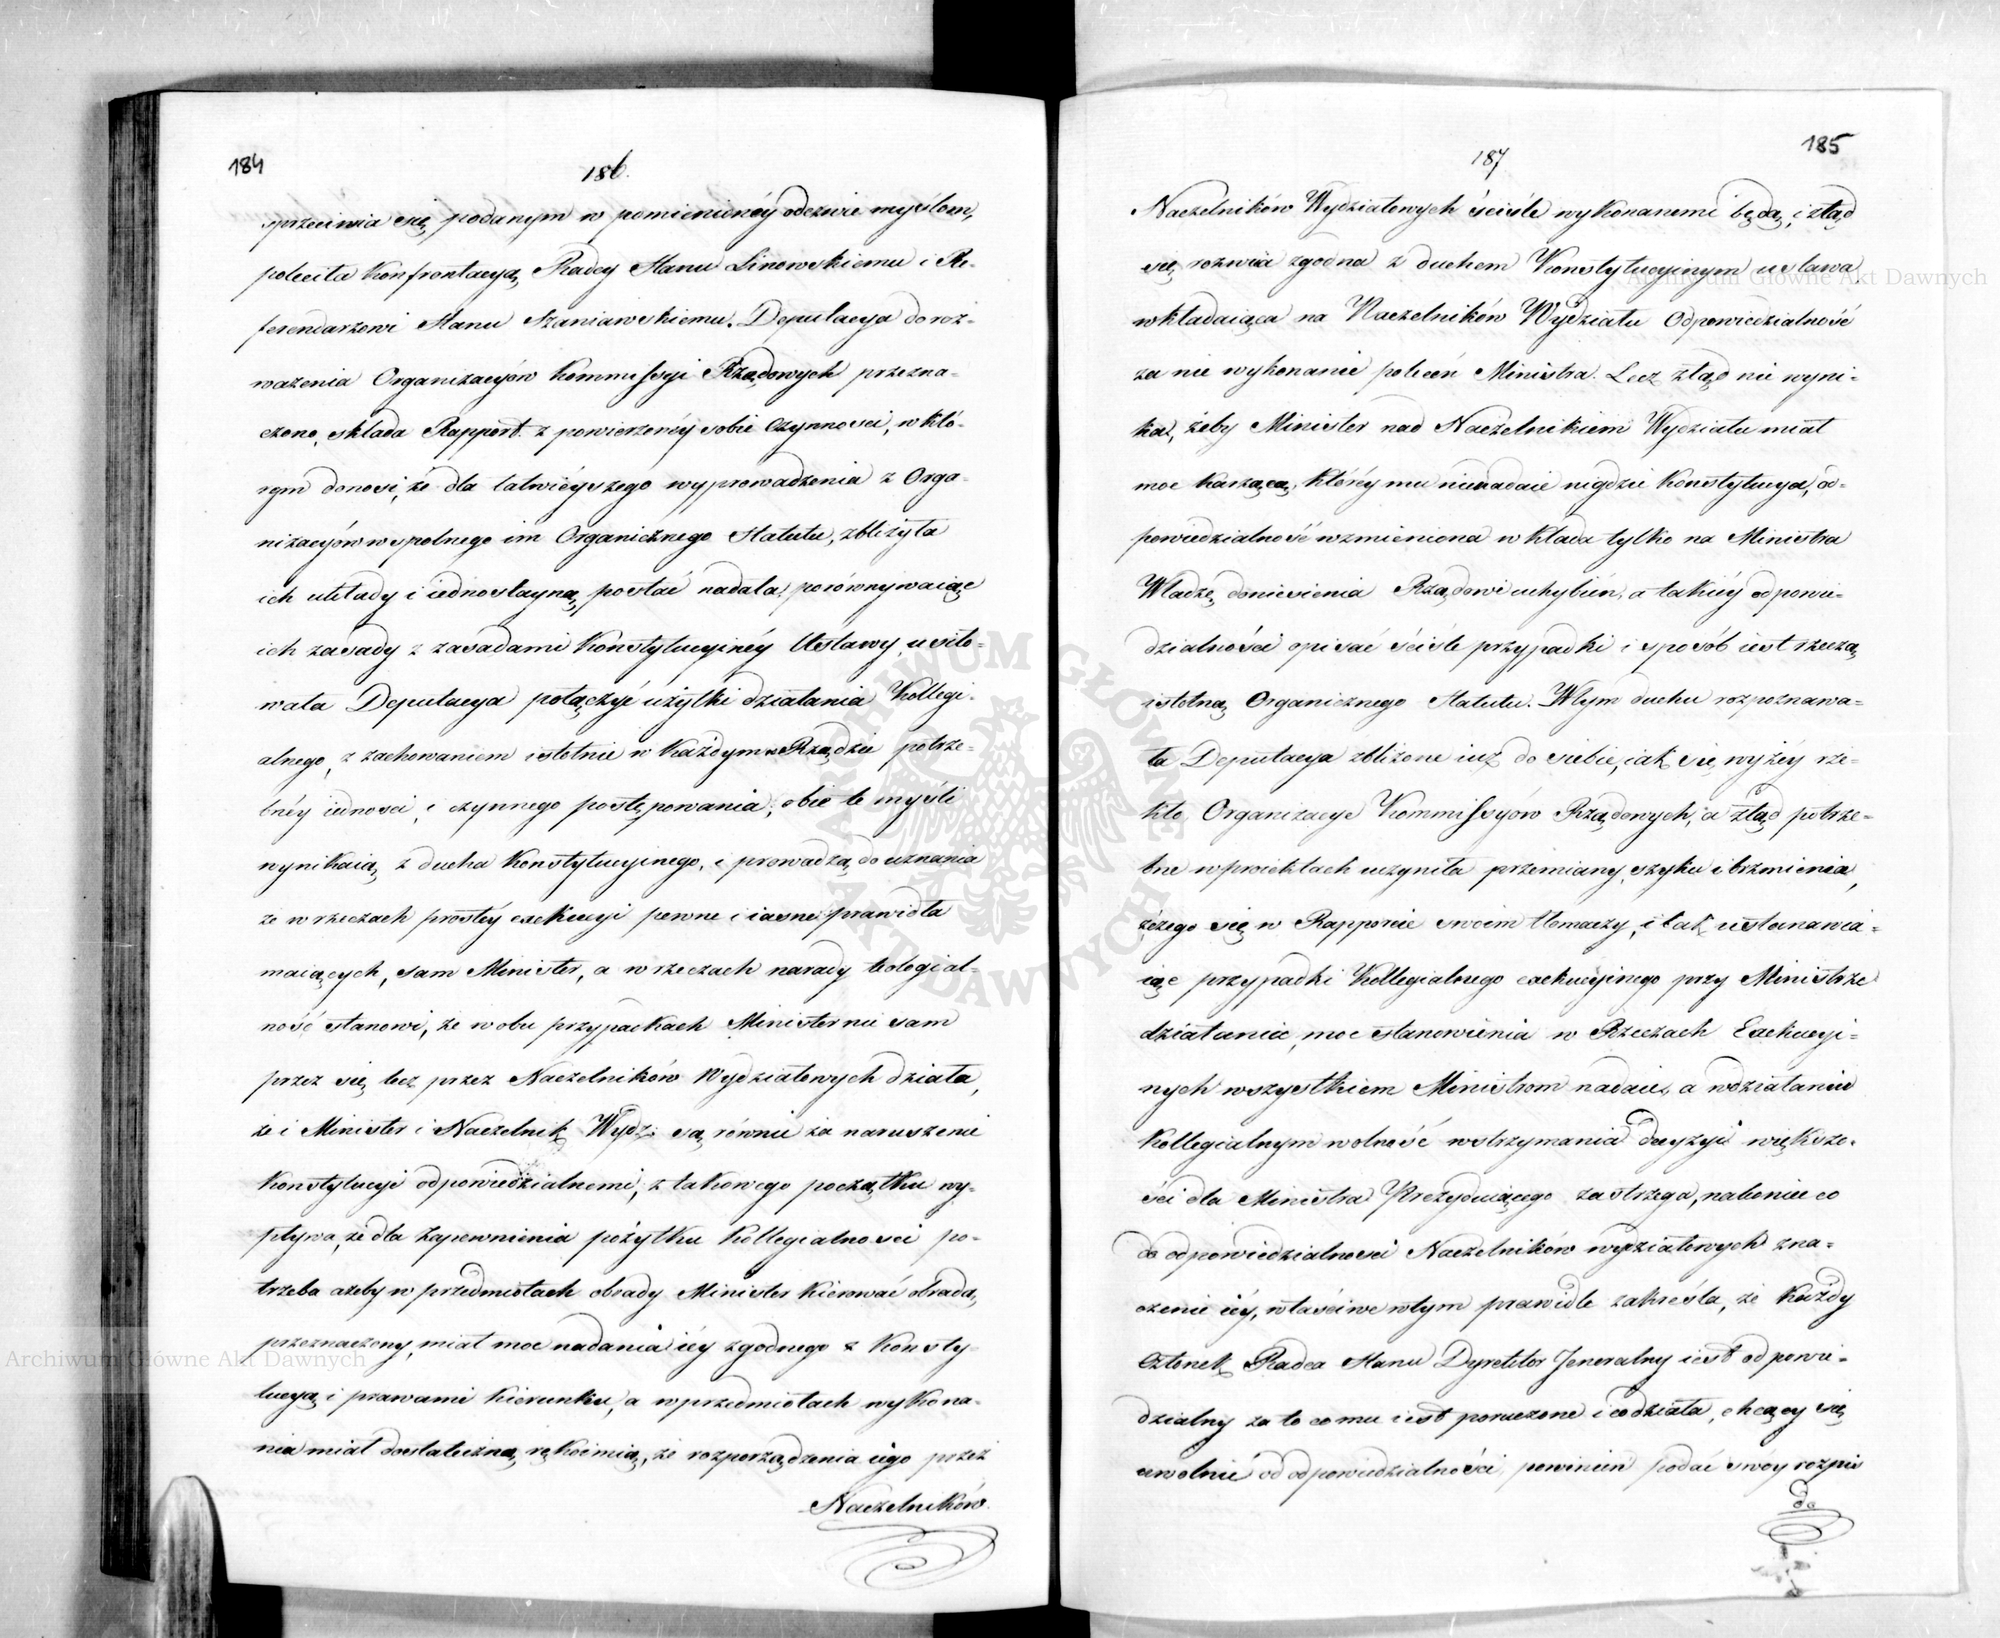 184
186.
sprzeciwia się, podanym w pomienionéy odezwie myślom,
poleciła Konfrontacyą, Radcy Stanu Linowskiemu i Re-
ferendarzowi Stanu Szaniawskiemu. Deputacya do roz-
ważenia Organizacyów Kommissyi Rządowych przezna-
czona, składa Rapport z powierzonéy sobie Czynności, w któ-
rym donosi, że dla łatwiéyszego wyprowadzenia z Orga-
nizacyów wspolnego im Organicznego Statutu, zbliżyła
ich układy i iednostayną postać nadała, porównywaiąc
ich zasady z zasadami Konstytucyinéy Ustawy, usiło-
wała Deputacya połączyć użytki działania Kollegi-
alnego, z zachowaniem istotnie w Każdym Rządzie potrze-
bnéy iedności, i czynnego postępowania; obie te myśli
wynikaią z ducha Konstytucyinego, i prowadzą do uznania
że w rzeczach prostéy exekucyi pewne i iasne prawidła
maiących, sam Minister, a w rzeczach narady kolegial-
ność stanowi, że w obu przypadkach Minister nie sam
przez się lecz przez Naczelników Wydziałowych działa,
że i Minister i Naczelnik Wydz: są równie za naruszenie
Konstytucyi odpowiedzialnemi, z takowego początku wy-
pływa, że dla Zapewnienia pożytku Kollegialności po-
trzeba ażeby w przedmiotach obrady Minister Kierować obradą,
przeznaczony, miał moc nadania iéy zgodnego z Konsty-
tucyą i prawami Kierunku, a w przedmiotach wykona-
nia miał dostateczną rękoimią, że rozporządzenia iego przez
Naczelników
185
187
Naczelników Wydziałowych ściśle wykonanemi będą, i ztąd
się rozwiia zgodna z duchem Konstytucyinym ustawa
wkładaiąca na Naczelników Wydziału Odpowiedzialność
za nie wykonanie poleceń Ministra. Lecz ztąd nie wyni-
ka, żeby Minister nad Naczelnikiem Wydziału miał
moc karzącą, któréy mu nienadaie nigdzie Konstytucya, od-
powiedzialność wzmieniona wkłada tylko na Ministra
Władzę doniesienia Rządowi uchybień, a takiéy odpowie-
dzialności opisać ściśle przypadki i sposób iest rzeczą
istotną Organicznego Statutu. W tym duchu rozpoznawa-
ła Deputacya zbliżone iuż do siebie, iak się wyżéy rze-
kło, Organizacye Kommissyów Rządowych, a ztąd potrze-
bne w proiektach uczyniła przemiany, szyku i brzmienia,
czego się w Rapporcie swoim tłomaczy, i tak ustanawia-
iąc przypadki Kollegialnego exekucyinego przy Ministrze
działania, moc stanowienia w Rzeczach Exekucyi-
nych wszystkiem Ministrom nadaie, a w działaniu
Kollegialnym wolność wstrzymania decyzyi większo-
ści dla Ministra Prezyduiącego zastrzega, nakoniec co
do odpowiedzialności Naczelników wydziałowych zna-
czenie iéy, właściwe w tym prawidle zakreśla, że Każdy
Członek Radca Stanu Dyrektor Jeneralny iest odpowie-
dzialny za to co mu iest poruczone i co działa, chcący się
uwolnić od odpowiedzialności, powinien podać swóy rozpis
da
Archiwum Główne Akt Dawnych
Archiwum Główne Akt Dawnych
ARCHIWUM GŁÓWNE AKT DAWNYCH